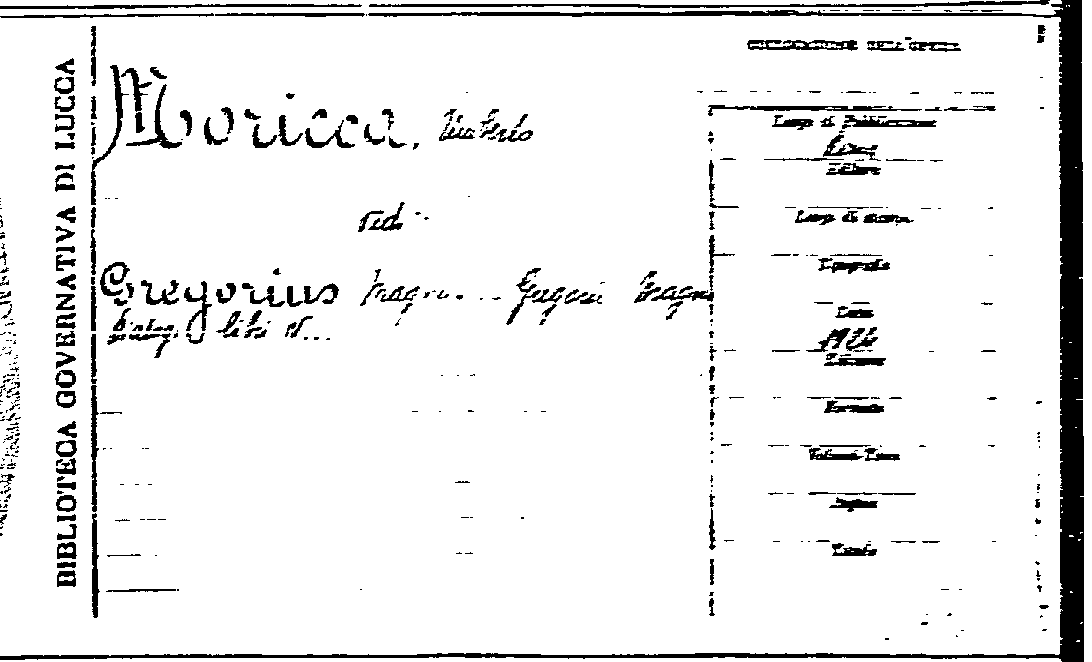 BIBLIOTECA GOVERNATIVA DI LUCCA
Moricca, Umberto
Ved.
Gregorius Magnus... Gregorii Magni
Dialogi libri IV...
Luogo di Pubblicazione
Roma
Editore
Luogo di stampa
Tipografo
Data
1924
Edizione
Formato
Pagine